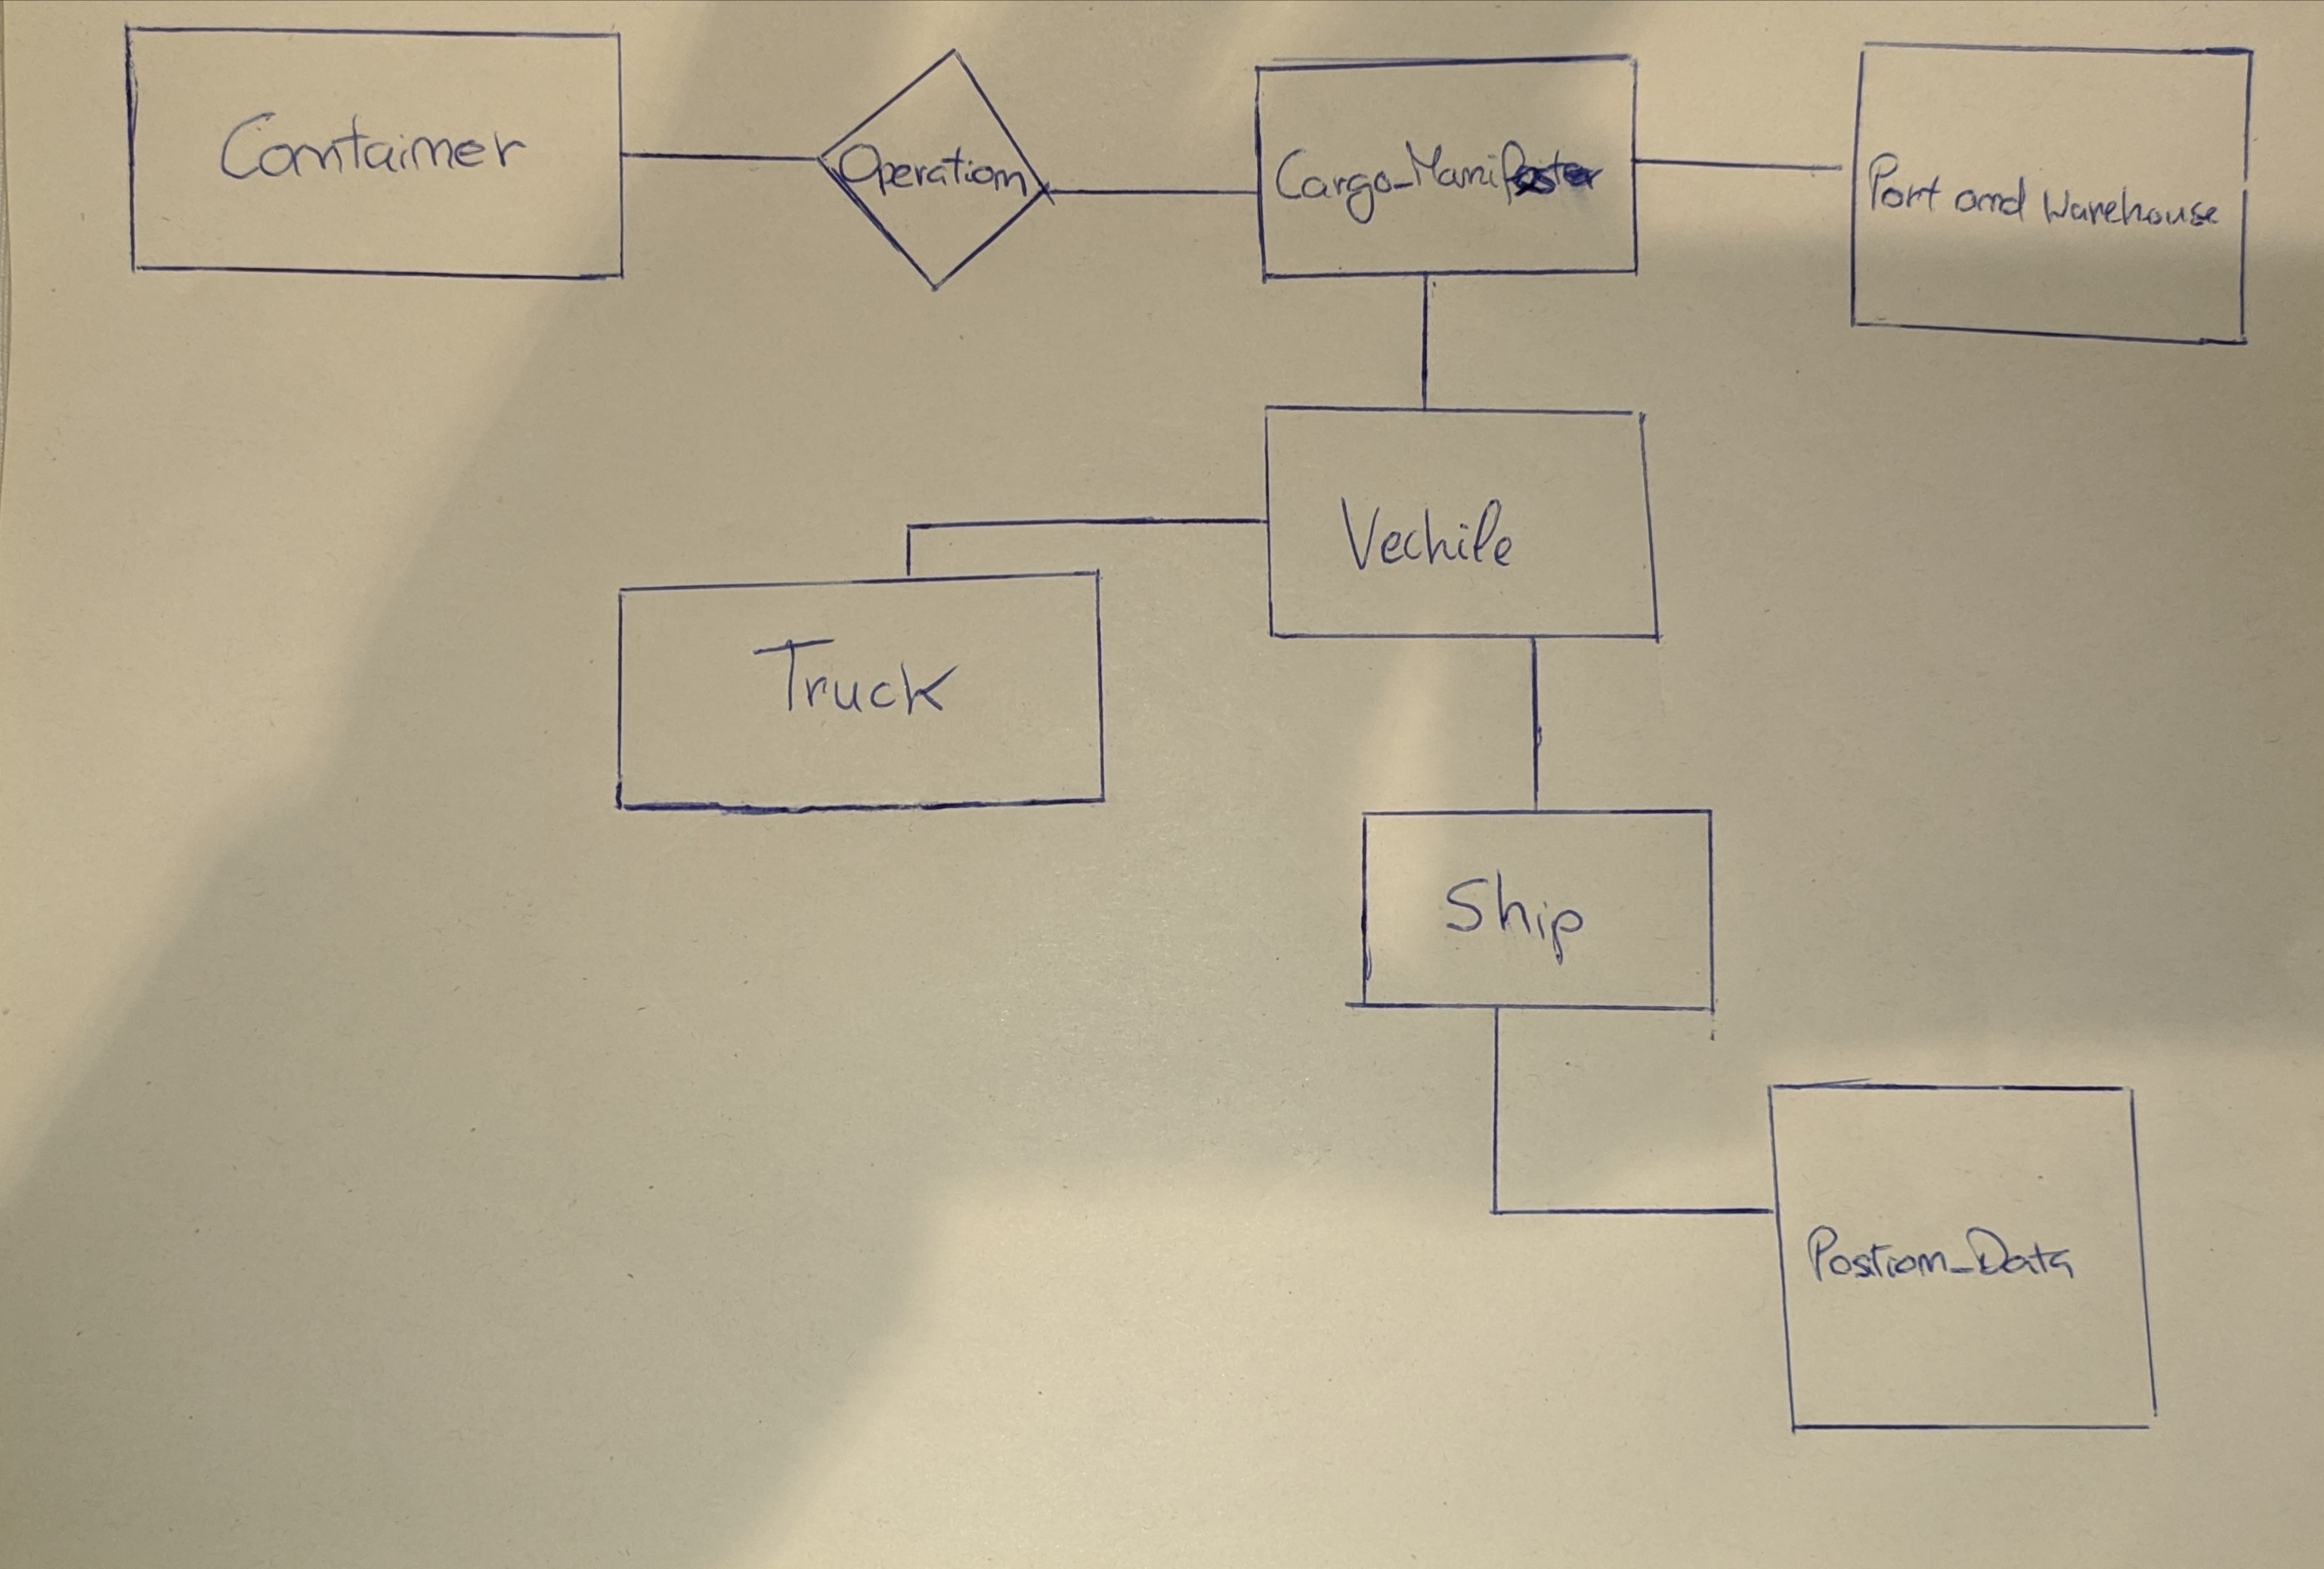 Container
Operation
Cargo_Manifester
Port and Warehouse
Vechile
Truck
Ship
Postion_Data